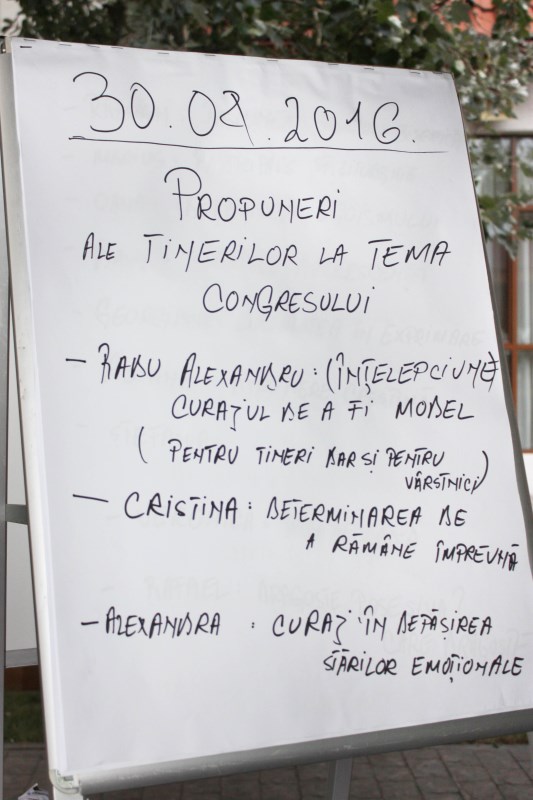 30.08.2016.
PROPUNERI
ALE TINERILOR LA TEMA
CONGRESULUI
- RADU ALEXANDRU: (ÎNȚELEPCIUNE)
CURAJUL DE A FI MODEL
( PENTRU TINERI DAR ȘI PENTRU
VÂRSTNICI)
- CRISTINA: DETERMINAREA DE
A RĂMÂNE ÎMPREUNĂ
- ALEXANDRA : CURAJ ÎN DEPĂȘIREA
STĂRILOR EMOȚIONALE